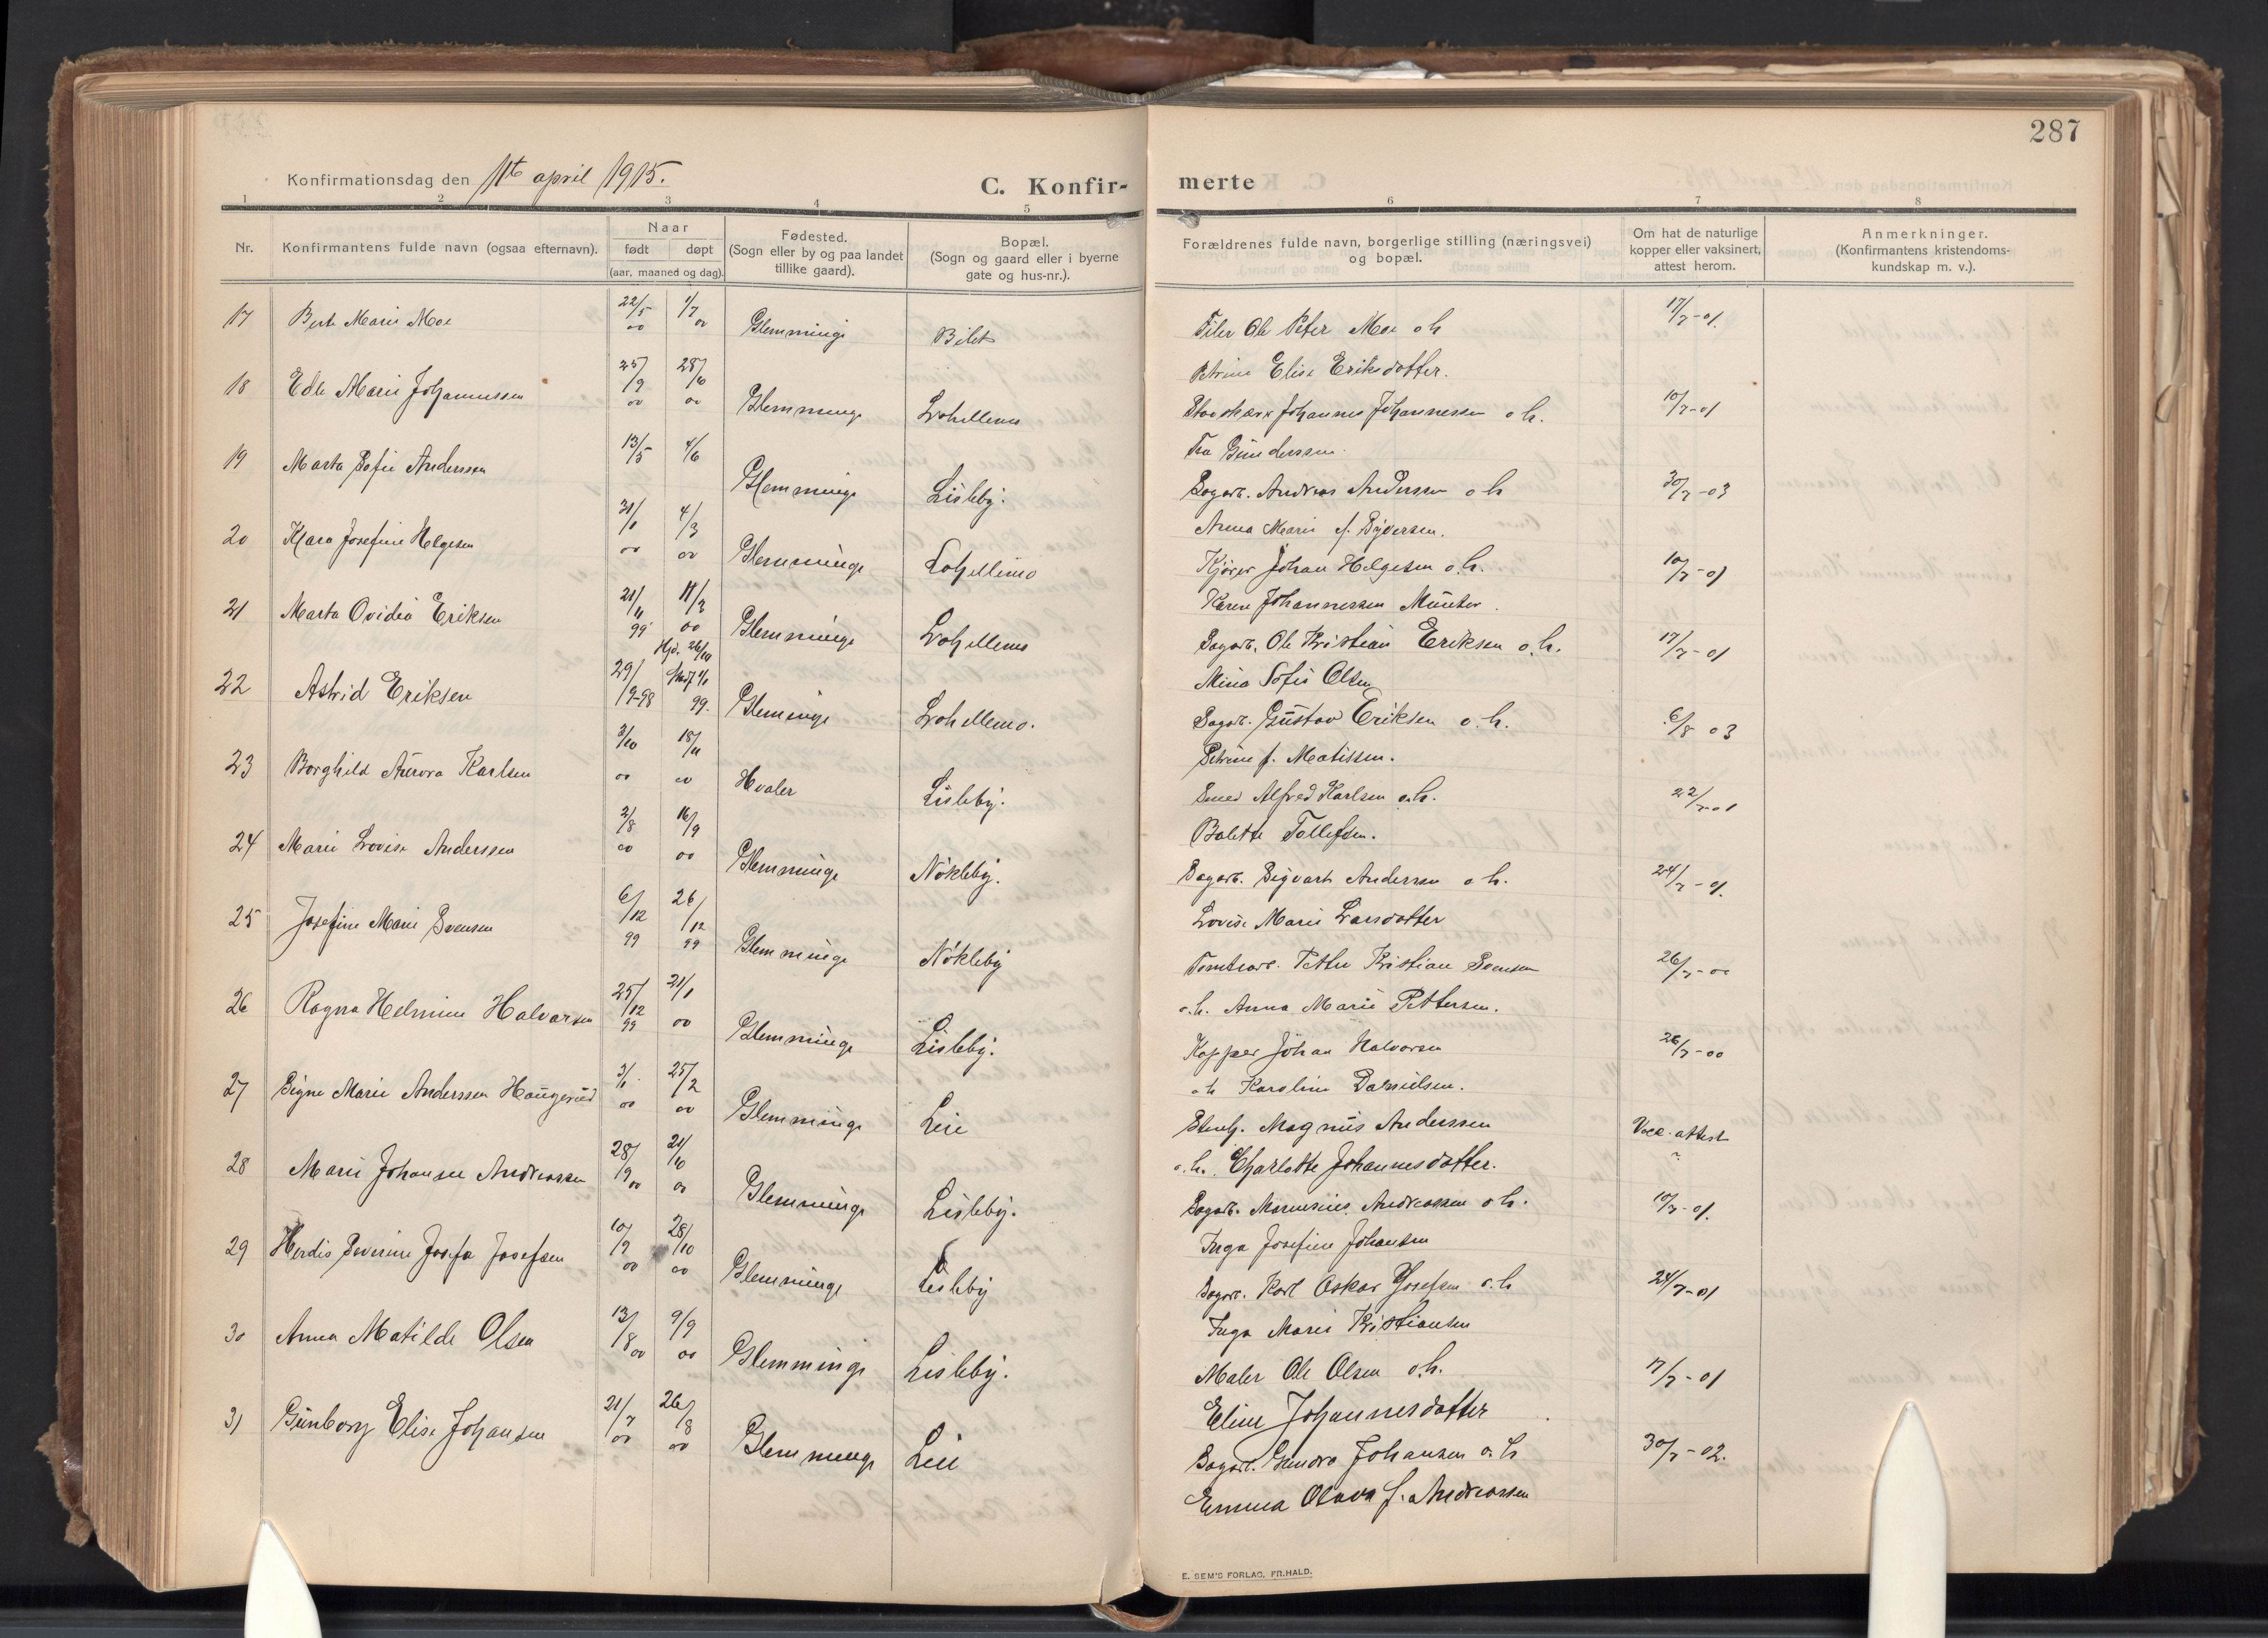 287
Konfirmationsdag den 11te april 1915.
C. Konfir-
merte
1 2 3 4 5 6 7 8
Nr.
Konfirmantens fulde navn (ogsaa efternavn).
Naar
født døpt
(aar, maaned og dag).
Fødested.
(Sogn eller by og paa landet
tillike gaard).
Bopæl.
(Sogn og gaard eller i byerne
gate og hus-nr.).
Forældrenes fulde navn, borgerlige stilling (næringsvei)
og bopæl.
Om hat de naturlige
kopper eller vaksinert,
attest herom.
Anmerkninger.
(Konfirmantens kristendoms-
kundskap m. v.).
17 Berte Marie Moe 22/5 00 1/7 00 Glemminge Bilet Filer Ole Peter Moe o h 17/7-01.
Petrine Elise Eriksdatter.
18 Edle Marie Johannessen 25/9 00 28/10 00 Glemminge Johannes Johannessen o h. 10/7-01
Gunderssen.
19 Marta Sofie Anderssen 13/5 4/6 Glemminge Lisleby. Sagarb. Andreas Anderssen o h 30/7-03
Anna Marie f. Syversen.
20 Klara Josefine Helgesen 31/1 00 4/3 00 Glemminge Kjører Johan Helgesen o.h. 10/7-01
Karen Johannessen Munter.
21 Marta Ovidia Eriksen 21/11 99 11/3 00 Glemminge Sagarb. Ole Kristian Eriksen o.h. 17/7-01
Mina Sofie Olsen
22 Astrid Eriksen 29/9-98 Hjd. 26/10 99. Glemminge Sagarb. Gustav Eriksen o.h. 6/8 03
Petrine f. Matissen.
23 Borghild Aurora Karlsen 3/10 00 18/11 00 Hvaler Lisleby. Smed Alfred Karlsen o.h. 22/7-01
Bolette Tollefsen.
24 Marie Lovise Anderssen 2/8 00 16/9 00 Glemminge Nökleby. Sagarb. Sigvart Anderssen o h. 24/7-01.
Lovise Marie Larsdatter
25 Josefine Marie Svensen 6/12 99 26/12 99 Glemminge Nökleby Tomtearb. Petter Kristian Svensen 26/7-00
o.h. Anna Marie Pettersen.
26 Ragna Helmine Halvorsen 25/12 99 21/1 00 Glemminge Lisleby. Johan Halvorsen 26/7-00
o h Karoline Danielsen.
27 Signe Marie Anderssen Haugerud 3/1. 00 25/2 00 Glemminge Leie Stenh. Magnus Anderssen Vacc. attest
o.h. Charlotte Johannesdatter.
28 Marie Johanne Andreassen 28/9 00 21/10 00 Glemminge Lisleby. Sagarb. Andreassen o h. 10/7-01.
Inga Josefine Johansen
29 Herdis Severine Josefa Josefsen 10/9 00 28/10 00 Glemminge Lisleby Sagarb. Karl Oskar Josefsen o.h 24/7-01
Inga Marie Kristiansen
30 Anna Matilde Olsen 13/8 00 9/9 00 Glemminge Lisleby. Maler Ole Olsen o.h. 17/7-01
Eline Johannesdatter
31 Gunborg Elise Johansen 21/7 00 26/8 00 Glemminge Leie Sagarb. Johansen o. h 30/7-02.
Emma Olava f. Andreassen
E. SEM'S FORLAG, FR.HALD.